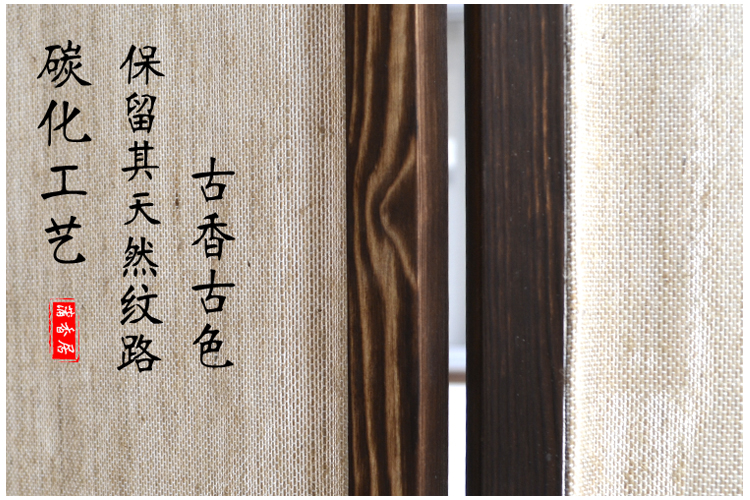 碳化工艺
保留其天然纹路
古香古色
满香居